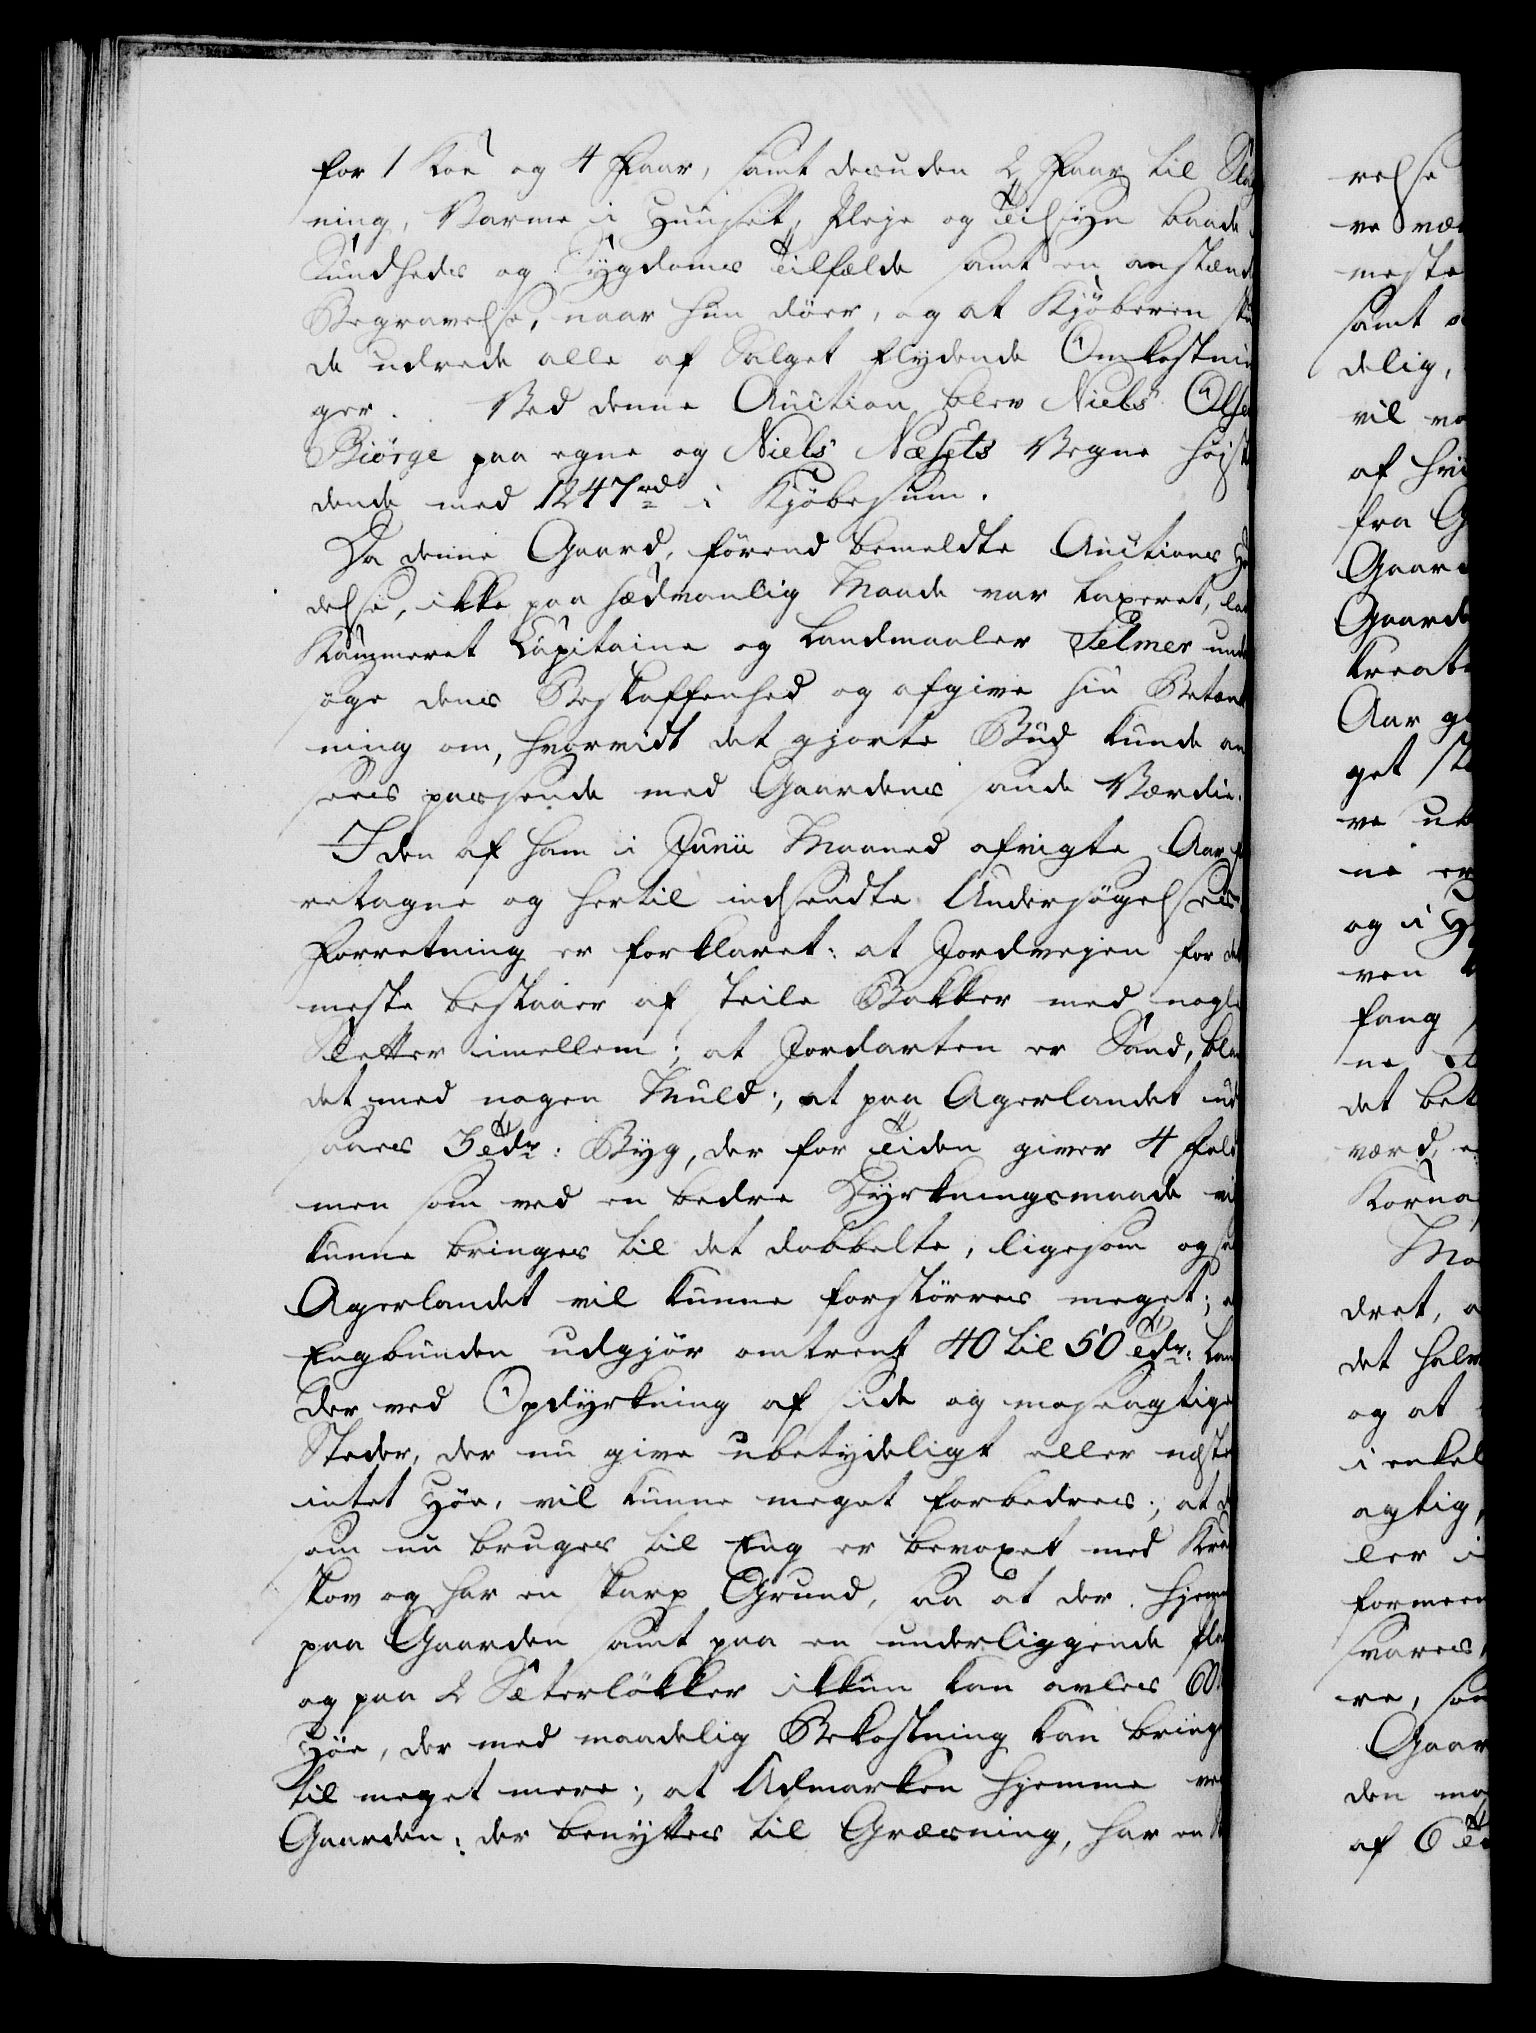 for 1 Koe og 4 Faar, samt desuden 2 Faar til Slag
ning, Varme i Huuset, Pleje og Tilsyn baade i
Sundheds og Sygdoms Tilfælde samt en anstænd
Begravelse, naar hun döer, og at Kjöberen skul
de udrede alle af Salget flydende Omkostnin
ger. Ved denne Auction blev Niels Olsen
Biörge paa egne og Niels Næsets Vegne höjst
dende med 1247 rd i Kjöbesum.
Da denne Gaard, förend bemeldte Auctions
delse, ikke paa sædvanlig Maade var taxeret, lod
Kammeret Capitaine og Landmaaler Selmer und
söge dens Beskaffenhed og afgive sin Betænk
ning om, hvorvidt det gjorte Bud kunde an
sees passende med Gaardens sande Værdie.
I den af ham i Junii Maaned afvigte Aar fo
retagne og hertil indsendte Undersögelses
Forretning er forklaret: at Jordvejen for det
meste bestaaer af steile Bakker med nogle
Sletter imellem; at Jordarten er Sand, blan
det med nogen Muld; at paa Agerlandet ud
saaes 3 Tdr: Byg, der for Tiden giver 4 fold
men som ved en bedre Dyrkningsmaade vil
kunne bringes til det dobbelte, ligesom ogsaa
Agerlandet vil kunne forstörres meget; at
Engbunden udgjör omtrent 40 til 50 Tdr: Land
der ved Opdyrkning af side og moseagtige
Steder, der nu give ubetydeligt eller næsten
intet Höe, vil kunne meget forbedres; at d
som nu bruges til Eng er bevoxet med Krat
skov og har en skarp Grund, saa at der hjemme
paa Gaarden samt paa en underliggende Pla
og paa 2 Sæterlökker ikkun kan avles 60
Höe, der med maadelig Bekostning kan bringe
til meget mere; at Udmarken hjemme ved
Gaarden, der benyttes til Græsning, har en

relse
ve væ
meste
samt
delig,
vil
af
fra
Gaard
Gaarde
Kreat
Aar
get
ve
ne er
og i
ven
fang
ne
det bet
værd,
Korna
Mo
dret,
det halv
og at
i enkel
agtig,
ler i
formeen
svares,
re, som
Gaar
den
af 6